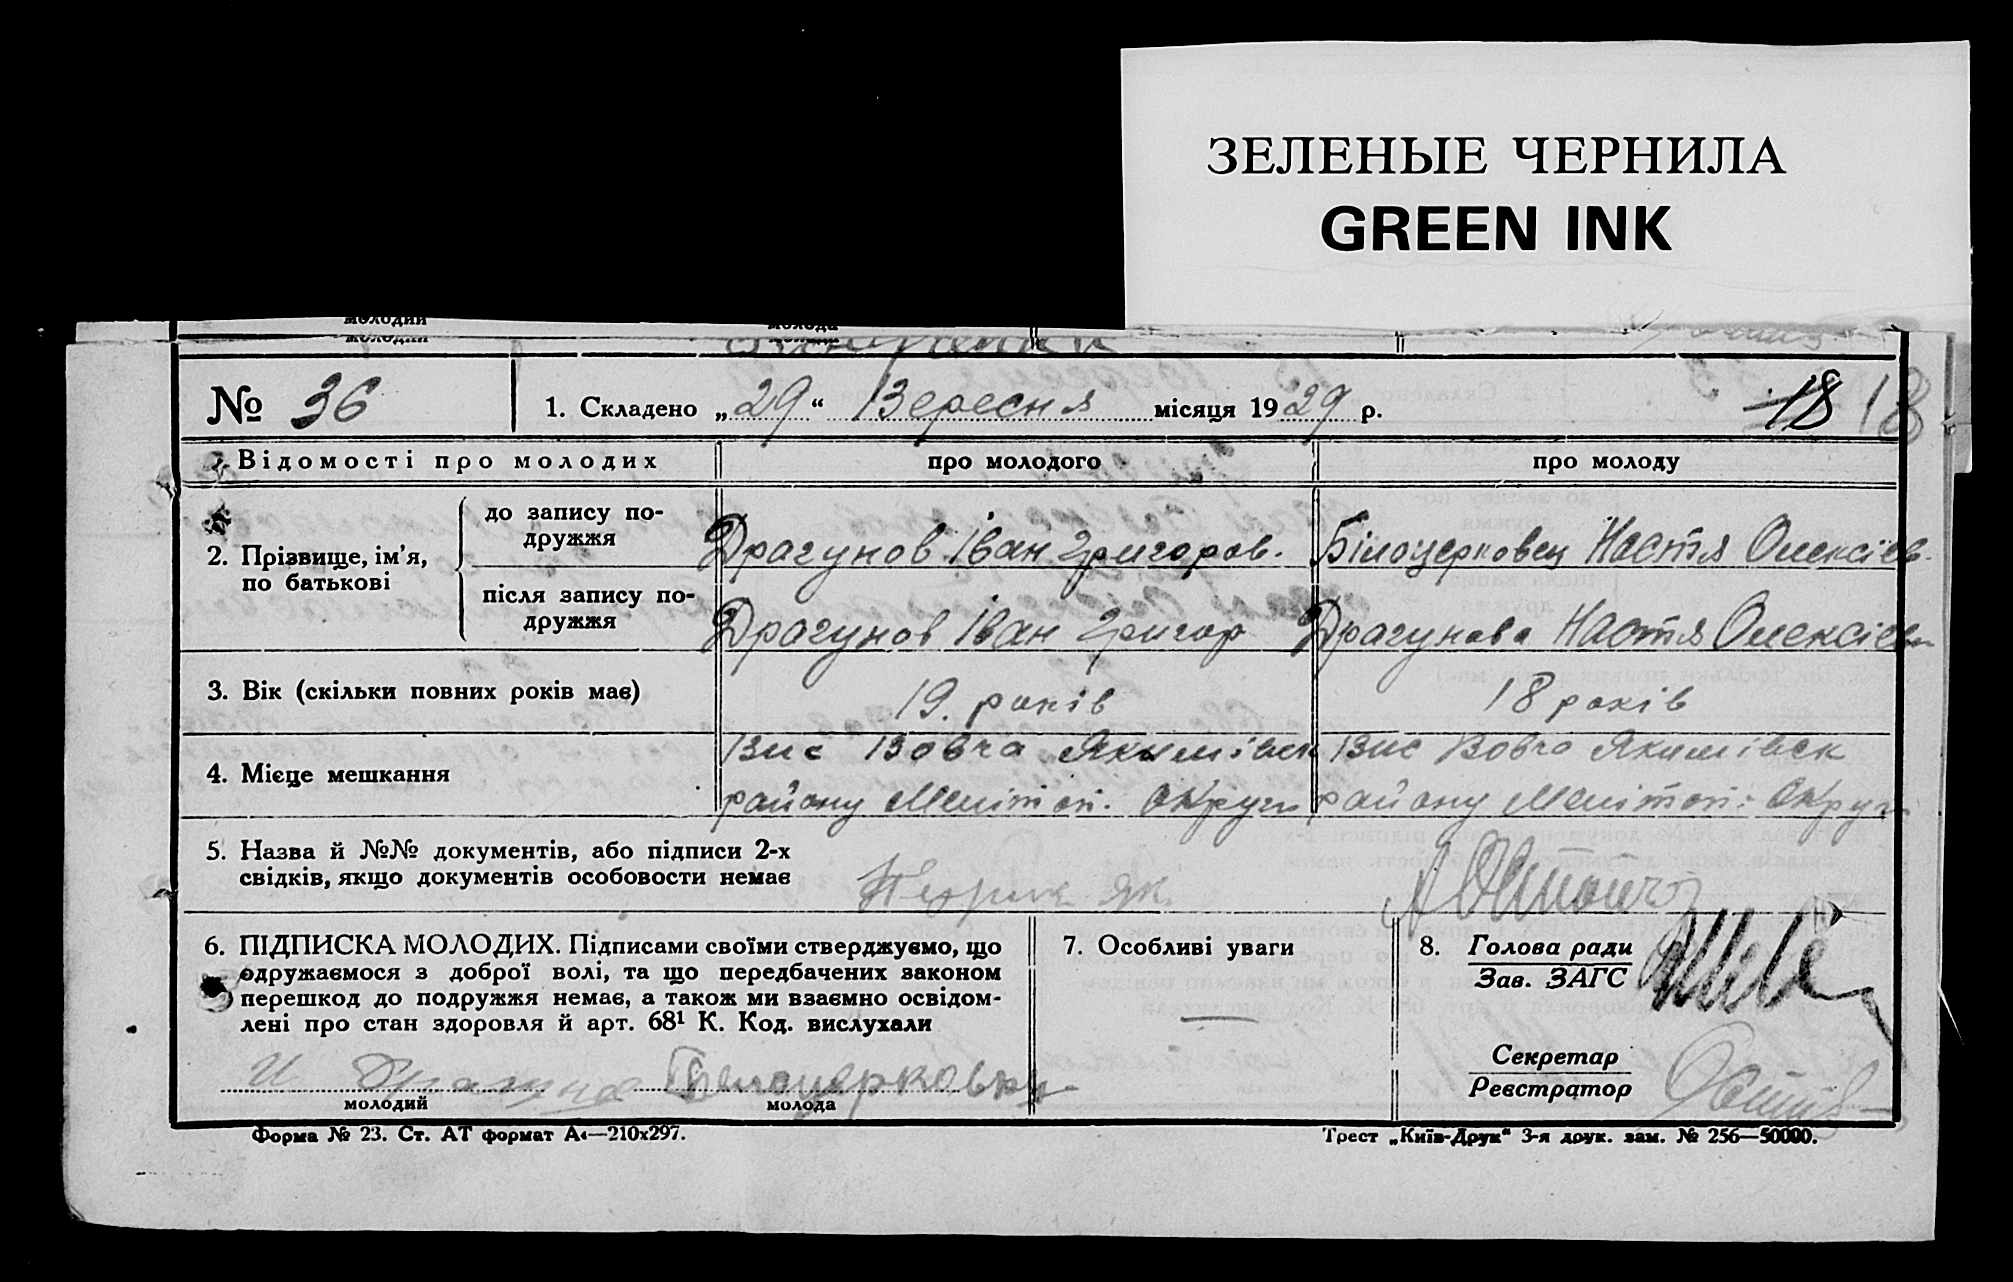 ЗЕЛЕНЫЕ ЧЕРНИЛА
GREEN INK
молодий
молода
№ 36
1. Складено „29“ Вересня місяця 1929 р.
18 18
Відомості про молодих
про молодого
про молоду
2. Прізвище, ім’я, по батькові
до запису по-
дружжя
Драгунов Іван Григоров.
Білоцерковец Настя Олексіев.
після запису по-
дружжя
Драгунов Іван Григор
Драгунова Настя Олексіев
3. Вік (скільки повних років має)
19. років
18 років
4. Місце мешкання
Вис Вовча Якимівск
району Меліт оп. Округи
Вис Вовча Якимівск
району Мелітоп. Округи
5. Назва й №№ документів, або підписи 2-х
свідків, якщо документів особовости немає
6. ПІДПИСКА МОЛОДИХ. Підписами своїми стверджуємо, що
одружаємося з доброї волі, та що передбачених законом
перешкод до подружжя немає, а також ми взаємно освідом-
лені про стан здоровля й арт. 68¹ К. Код. вислухали
И Драгунов
Білоцерковец
молодий
молода
7. Особливі уваги
8. Голова ради
Зав. ЗАГС
Секретар
Реєстратор
Форма № 23. Ст. АТ формат А4—210х297.
Трест „Київ-Друк“ 3-я друк. зам. № 256—50000.